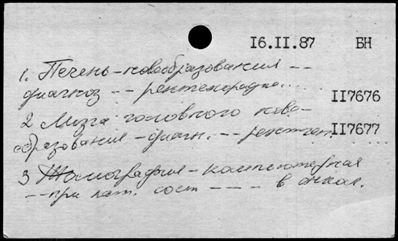 16.II.87 ВН
1. Печень-новообразования --
диагноз -- рентгенодиагн...
II7676
2 Мозга головного ново-
образования - диагн. -- рентген.
II7677
3 Томография - компьютерная
-- при пат. сост ---- в онкол.